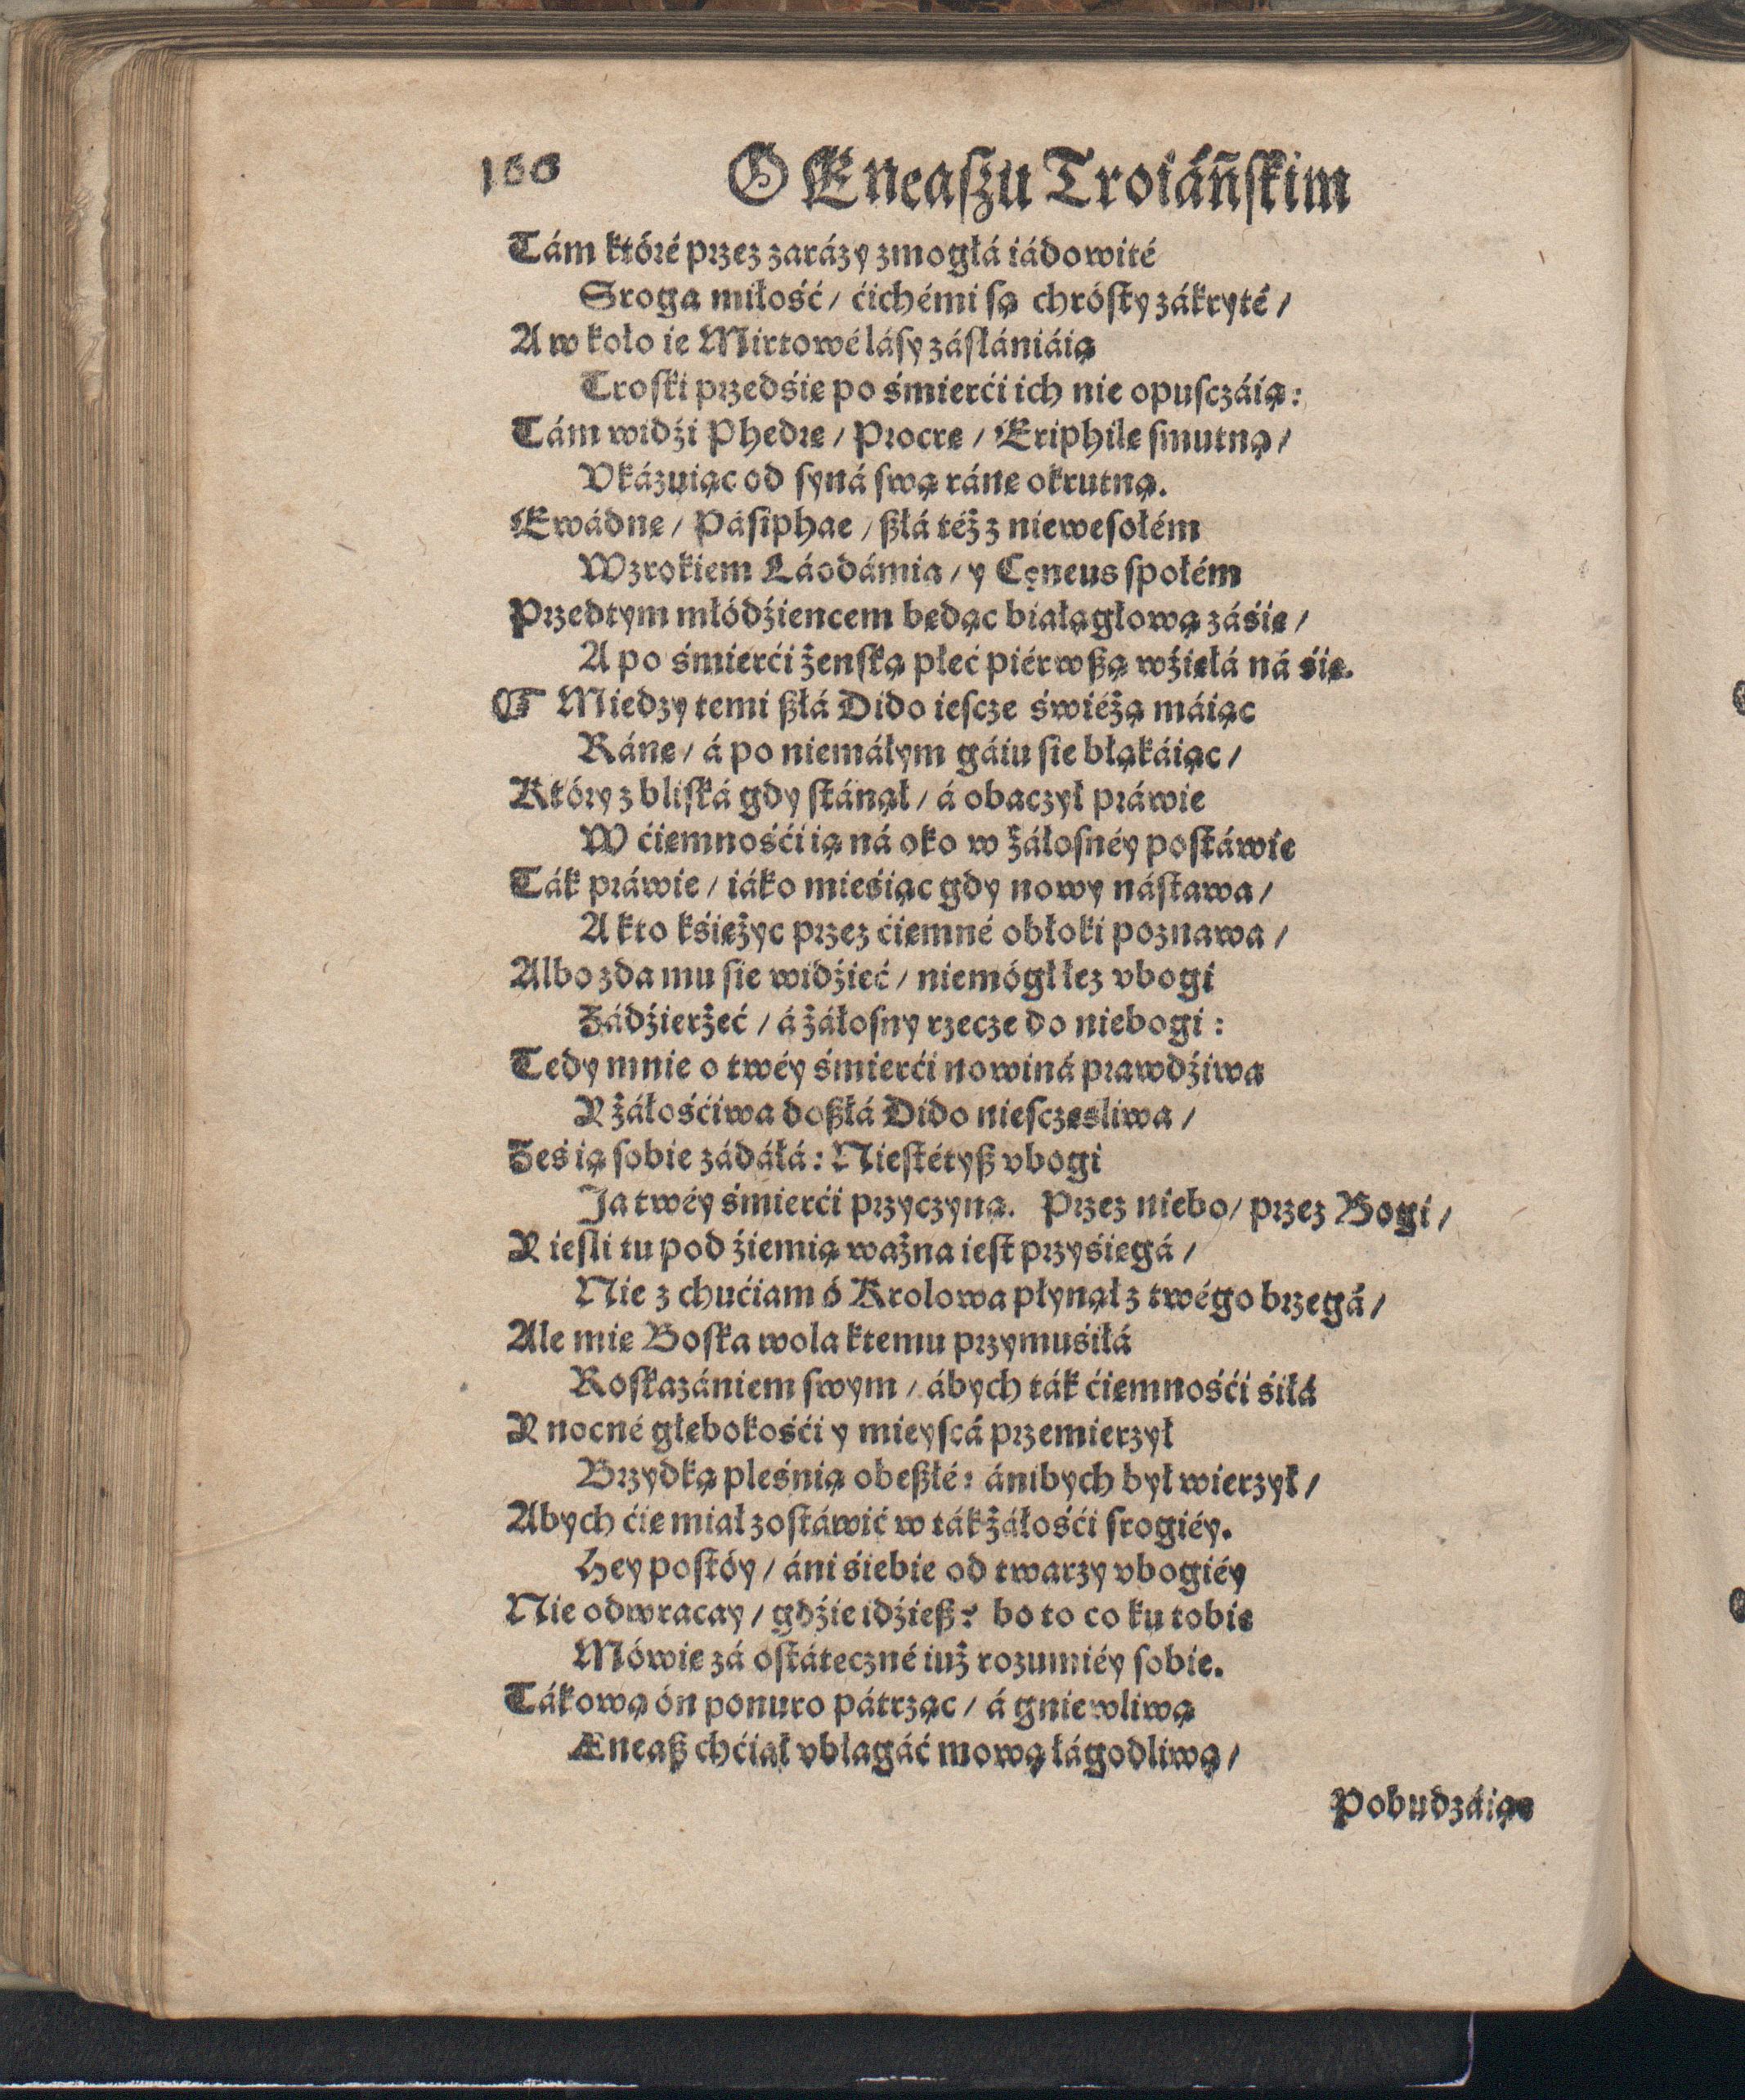 166 O Eneaſzu Troiáńſkim
Tám któré przez zarázy zmogłá iádowité
Sroga miłość / ćichémi ſą chróſty zákryté /
A w koło ie Mirtowé láſy záſłániáią
Troſki przedśię po śmierći ich nie opuſczáią:
Tám widźi Phedrę / Procrę / Eriphilę ſmutną /
Vkázuiąc od ſyná ſwą ránę okrutną.
Ewádnę / Páſiphae / ßłá téż z nieweſołém
Wzrokiem Láodámia / y Cęneus ſpołém
Przedtym młódźiencem będąc białągłową záśię /
A po śmierći żenſką płeć piérwßą wźięłá ná śię.
Miedzy temi ßłá Dido ieſcze świéżą máiąc
Ránę / á po niemáłym gáiu ſie błąkáiąc /
Który z bliſká gdy ſtánął / á obaczył práwie
W ćiemnośći ią ná oko w żáłoſnéy poſtáwie
Ták práwie / iáko mieśiąc gdy nowy náſtawa /
A kto kśiężyc przez ćiemné obłoki poznawa /
Albo zda mu ſie widźieć / niemógł łez vbogi
Zádźierżeć / á żáłoſny rzecze do niebogi:
Tedy mnie o twéy śmierći nowiná prawdźiwa
Y żáłośćiwa doßłá Dido nieſczęsliwa /
Żeś ią ſobie zádáłá: Nieſtétyß vbogi
Ja twéy śmierći przyczyną. Przez niebo / przez Bogi /
Y ieſli tu pod źiemią ważna ieſt przyśięgá /
Nie z chućiam ó Krolowa płynął z twégo brzegá /
Ale mie Boſka wola ktemu przymuśiłá
Roſkazániem ſwym / ábych ták ćiemnośći śiłá
Y nocné głębokośći y mieyſcá przemierzył
Brzydką pleśnią obeßłé: ánibych był wierzył /
Abych ćię miał zoſtáwić w ták żáłośći ſrogiéy.
Hey poſtóy / áni śiebie od twarzy vbogiéy
Nie odwracay / gdźie idźieß? bo to co ku tobie
Mówię zá oſtáteczné iuż rozumiéy ſobie.
Tákową ón ponuro pátrząc / á gniewliwą
Æneaß chćiał vbłagáć mową łágodliwą /
Pobudzáiąc